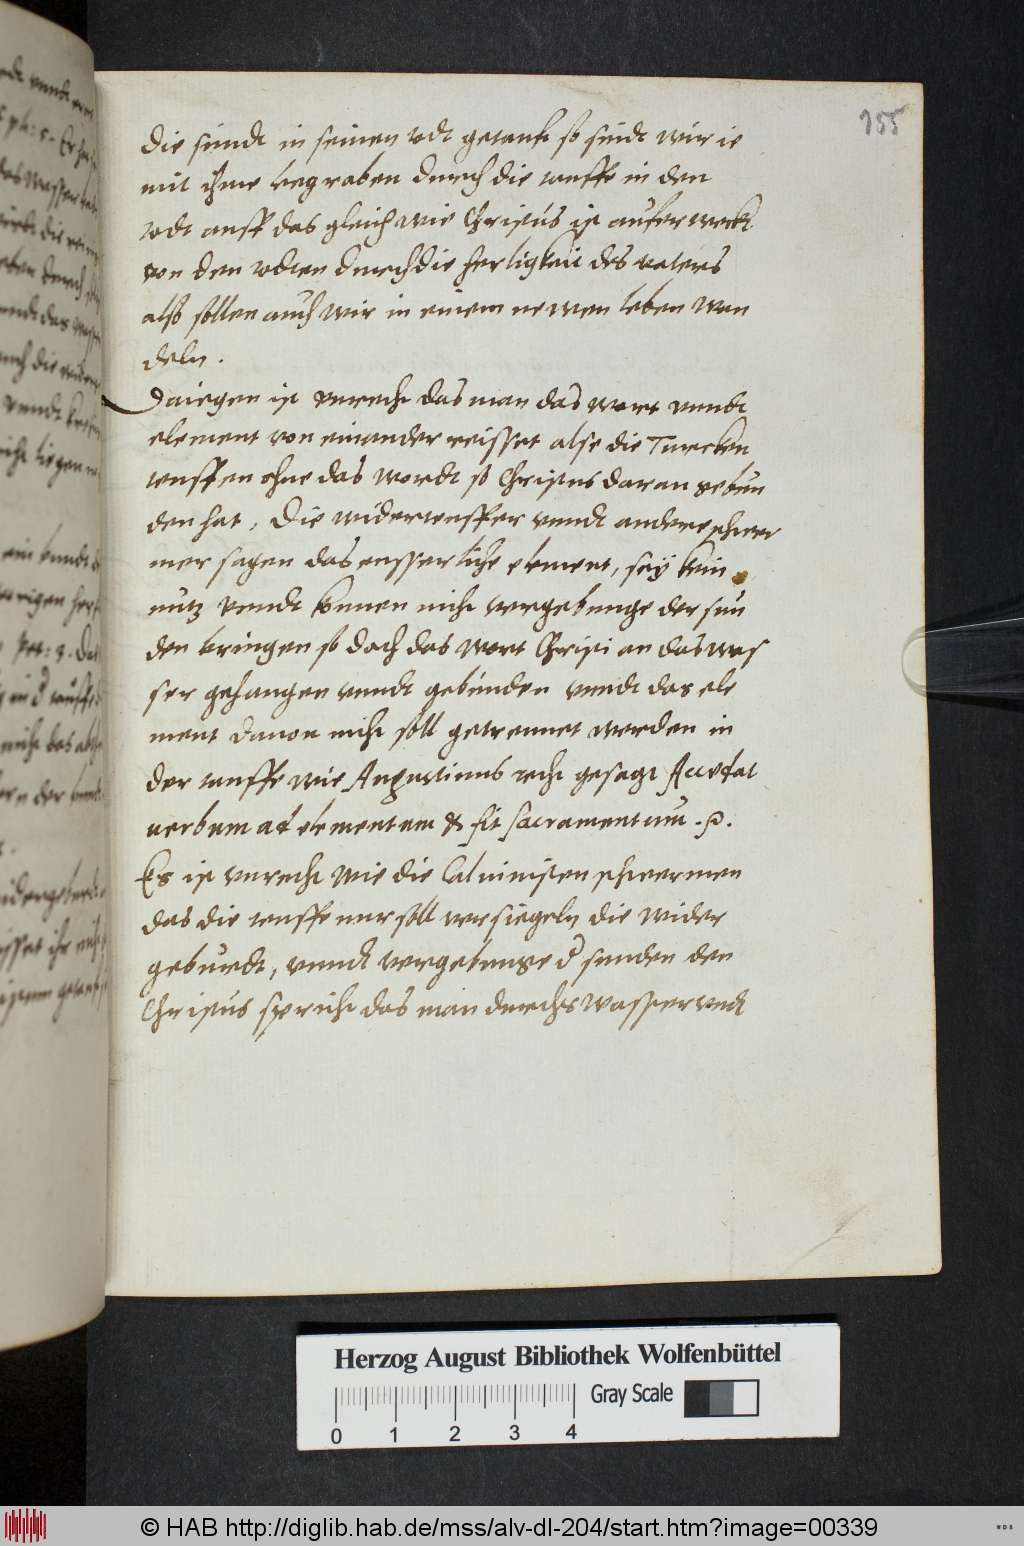 155
die sindt in seinen todt getaufft so sindt wir ie
mit ihme begraben durch die tauffe in den
todt auff das gleich wie Christus ist auferweckt
von den todten durch die herligkeit des vaters
also sollen auch wir in einem newen leben wan
deln.
Daiegen ist vnrecht das man das wort vnndt
element von einander reisset alse die Turcken
teuffen ohne das wordt so Christus daran gebun
den hat, Die widerteuffer vnndt andere schwer
mer sagen das eusserliche element, sey kein
nutz vnndt konnen nicht vergebunge der sun
den bringen so doch das wort Christi an das was
ser gehangen vnndt gebunden vnndt das ele
ment dauon nicht soll getrennet werden in
der tauffe wie Augustinus recht gesagt Accedat
uerbum ad elementum & fit sacramentum.
Es ist vnrecht wie die Caluinisten schwermen
das die teuffe nur soll versiegeln die wider
geburdt, vnndt vergebunge d sunden den
Christus spricht das man durchs wasser vndt
Herzog August Bibliothek Wolfenbüttel
Gray Scale
0 1 2 3 4
© HAB http://diglib.hab.de/mss/alv-dl-204/start.htm?image=00339